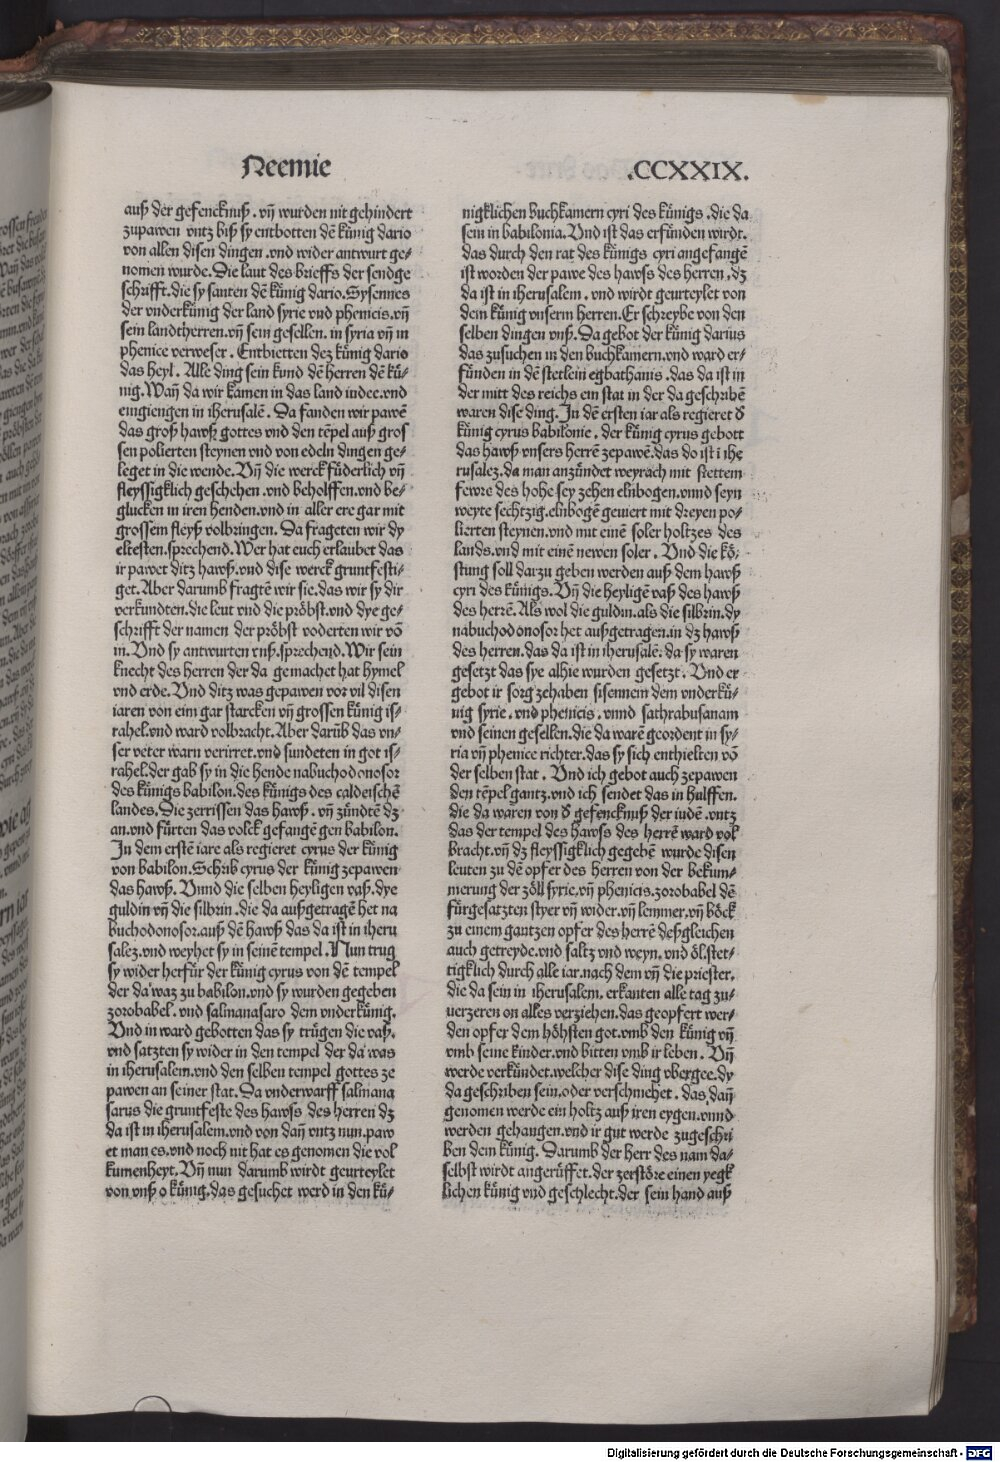 Neemie
.CCXXIX.
auß der gefencknuß. vñ wurden nit gehindert
zupawen vntz biß sy entbotten dē künig dario
von allen disen dingen .vnd wider antwurt ge⸗
nomen wurde. Die laut des brieffs der sendge
schrifft.die sy santen dē künig dario. Sysennes
der vnderkünig der land syrie vnd phenicis.vñ
sein landtherren.vñ sein gesellen. in syria vñ in
phenice verweser. Entbietten dez künig dario
das heyl. Alle ding sein kund dē herren dē kü⸗
nig. Wañ da wir kamen in das land iudee.vnd
eingiengen in iherusalē. Da fanden wir pawē
das groß hawß gottes vnd den tēpel auß gros
sen polierten steynen vnd von edeln dingen ge⸗
leget in die wende. Vñ die werck füderlich vñ
fleyssigklich geschehen .vnd beholffen.vnd be⸗
glucken in iren henden.vnd in aller ere gar mit
grossem fleyß volbringen. Da frageten wir dy
eltesten.sprechend. Wer hat euch erlaubet das
ir pawet ditz hawß.vnd dise werck gruntfesti⸗
get. Aber darumb fragtē wir sie.das wir sy dir
verkundten.die leut vnd die pröbst.vnd dye ge⸗
schrifft der namen der pröbst voderten wir vō
in. Vnd sy antwurten vnß.sprechend. Wir sein
knecht des herren der da gemachet hat hymel
vnd erde. Vnd ditz was gepawen vor vil disen
iaren von eim gar starcken vñ grossen künig is⸗
rahel.vnd ward volbracht. Aber darūb das vn⸗
ser veter warn verirret.vnd sundeten in got is⸗
rahel.der gab sy in die hende nabuchodonosor
des künigs babilon.des künigs des caldeischē
landes. Die zerrissen das hawß. vñ zündtē dz
an.vnd fürten das volck gefangē gen babilon.
In dem erstē iare als regieret cyrus der künig
von babilon. Schrib cyrus der künig zepawen
das hawß. Vnnd die selben heyligen vaß.dye
guldin vñ die silbrin .die da außgetragē het na
buchodonosor.auß dē hawß das da ist in iheru
salez.vnd weyhet sy in seinē tempel. Nun trug
sy wider herfür der künig cyrus von dē tempel
der da waz zu babilon.vnd sy wurden gegeben
zorobabel. vnd salmanasaro dem vnderkünig.
Vnd in ward gebotten das sy trügen die vaß.
vnd satzten sy wider in den tempel der da was
in iherusalem.vnd den selben tempel gottes ze
pawen an seiner stat. Da vnderwarff salmana
sarus die gruntfeste des hawss des herren dz
da ist in iherusalem.vnd von dañ vntz nun.paw
et man es.vnd noch nit hat es genomen die vol
kumenheyt. Vñ nun darumb wirdt geurteylet
von vnß o künig.das gesuchet werd in den kü⸗
nigklichen buchkamern cyri des künigs .die da
sein in babilonia. Vnd ist das erfünden wirdt.
das durch den rat des künigs cyri angefangē
ist worden der pawe des hawss des herren .dz
da ist in iherusalem. vnd wirdt geurteylet von
dem künig vnserm herren. Er schreybe von den
selben dingen vnß. Da gebot der künig darius
das zusuchen in den buchkamern.vnd ward er⸗
fünden in dē stetlein egbathanis.das da ist in
der mitt des reichs ein stat in der da geschribē
waren dise ding. In dē ersten iar als regieret d̕
künig cyrus babilonie. der künig cyrus gebott
das hawß vnsers herrē zepawē.das do ist ī ihe
rusalez.da man anzündet weyrach mit stettem
fewre des hohe sey zehen elnbogen.vnnd seyn
weyte sechtzig.elnbogē geviert mit dreyen po⸗
lierten steynen.vnd mit einē soler holtzes des
lands.vnd mit einē newen soler. Vnd die kö⸗
stung soll darzu geben werden auß dem hawß
cyri des künigs. Vñ die heyligē vaß des hawß
des herrē. Als wol die guldin.als die silbrin.dy
nabuchodonosor het außgetragen.in dz hawß
des herren.das da ist in iherusalē. da sy waren
gesetzt das sye alhie wurden gesetzt. Vnd er
gebot ir sorg zehaben sisennem dem vnderkü⸗
nig syrie.vnd phenicis. vnnd sathrabusanam
vnd seinen gesellen.die da warē geordent in sy⸗
ria vñ phenice richter.das sy sich enthielten vō
der selben stat. Vnd ich gebot auch zepawen
den tēpel gantz.vnd ich sendet das in hulffen.
die da waren von d̕ gefencknuß der iudē .vntz
das der tempel des hawss des herrē ward vol
bracht.vñ dz fleyssigklich gegebē wurde disen
leuten zu dē opfer des herren von der bekum⸗
merung der zöll syrie.vñ phenicis.zorobabel dē
fürgesatzten styer vñ wider.vñ lemmer.vñ böck
zu einem gantzen opfer des herrē deßgleichen
auch getreyde.vnd saltz vnd weyn. vnd öl.stet⸗
tigklich durch alle iar.nach dem vñ die priester.
die da sein in iherusalem. erkanten alle tag zu⸗
uerzeren on alles verziehen.das geopfert wer⸗
den opfer dem höhsten got.vmb den künig vñ
vmb seine kinder.vnd bitten vmb ir leben. Vñ
werde verkündet.welcher dise ding vbergee.dy
da geschriben sein.oder verschmehet. das dañ
genomen werde ein holtz auß iren eygen.vnnd
werden gehangen.vnd ir gut werde zugeschri
ben dem künig. Darumb der herr des nam da⸗
selbst wirdt angerüffet.der zerstöre einen yegk
lichen künig vnd geschlecht.der sein hand auß
Digitalisierung gefördert durch die Deutsche Forschungsgemeinschaft - DFG